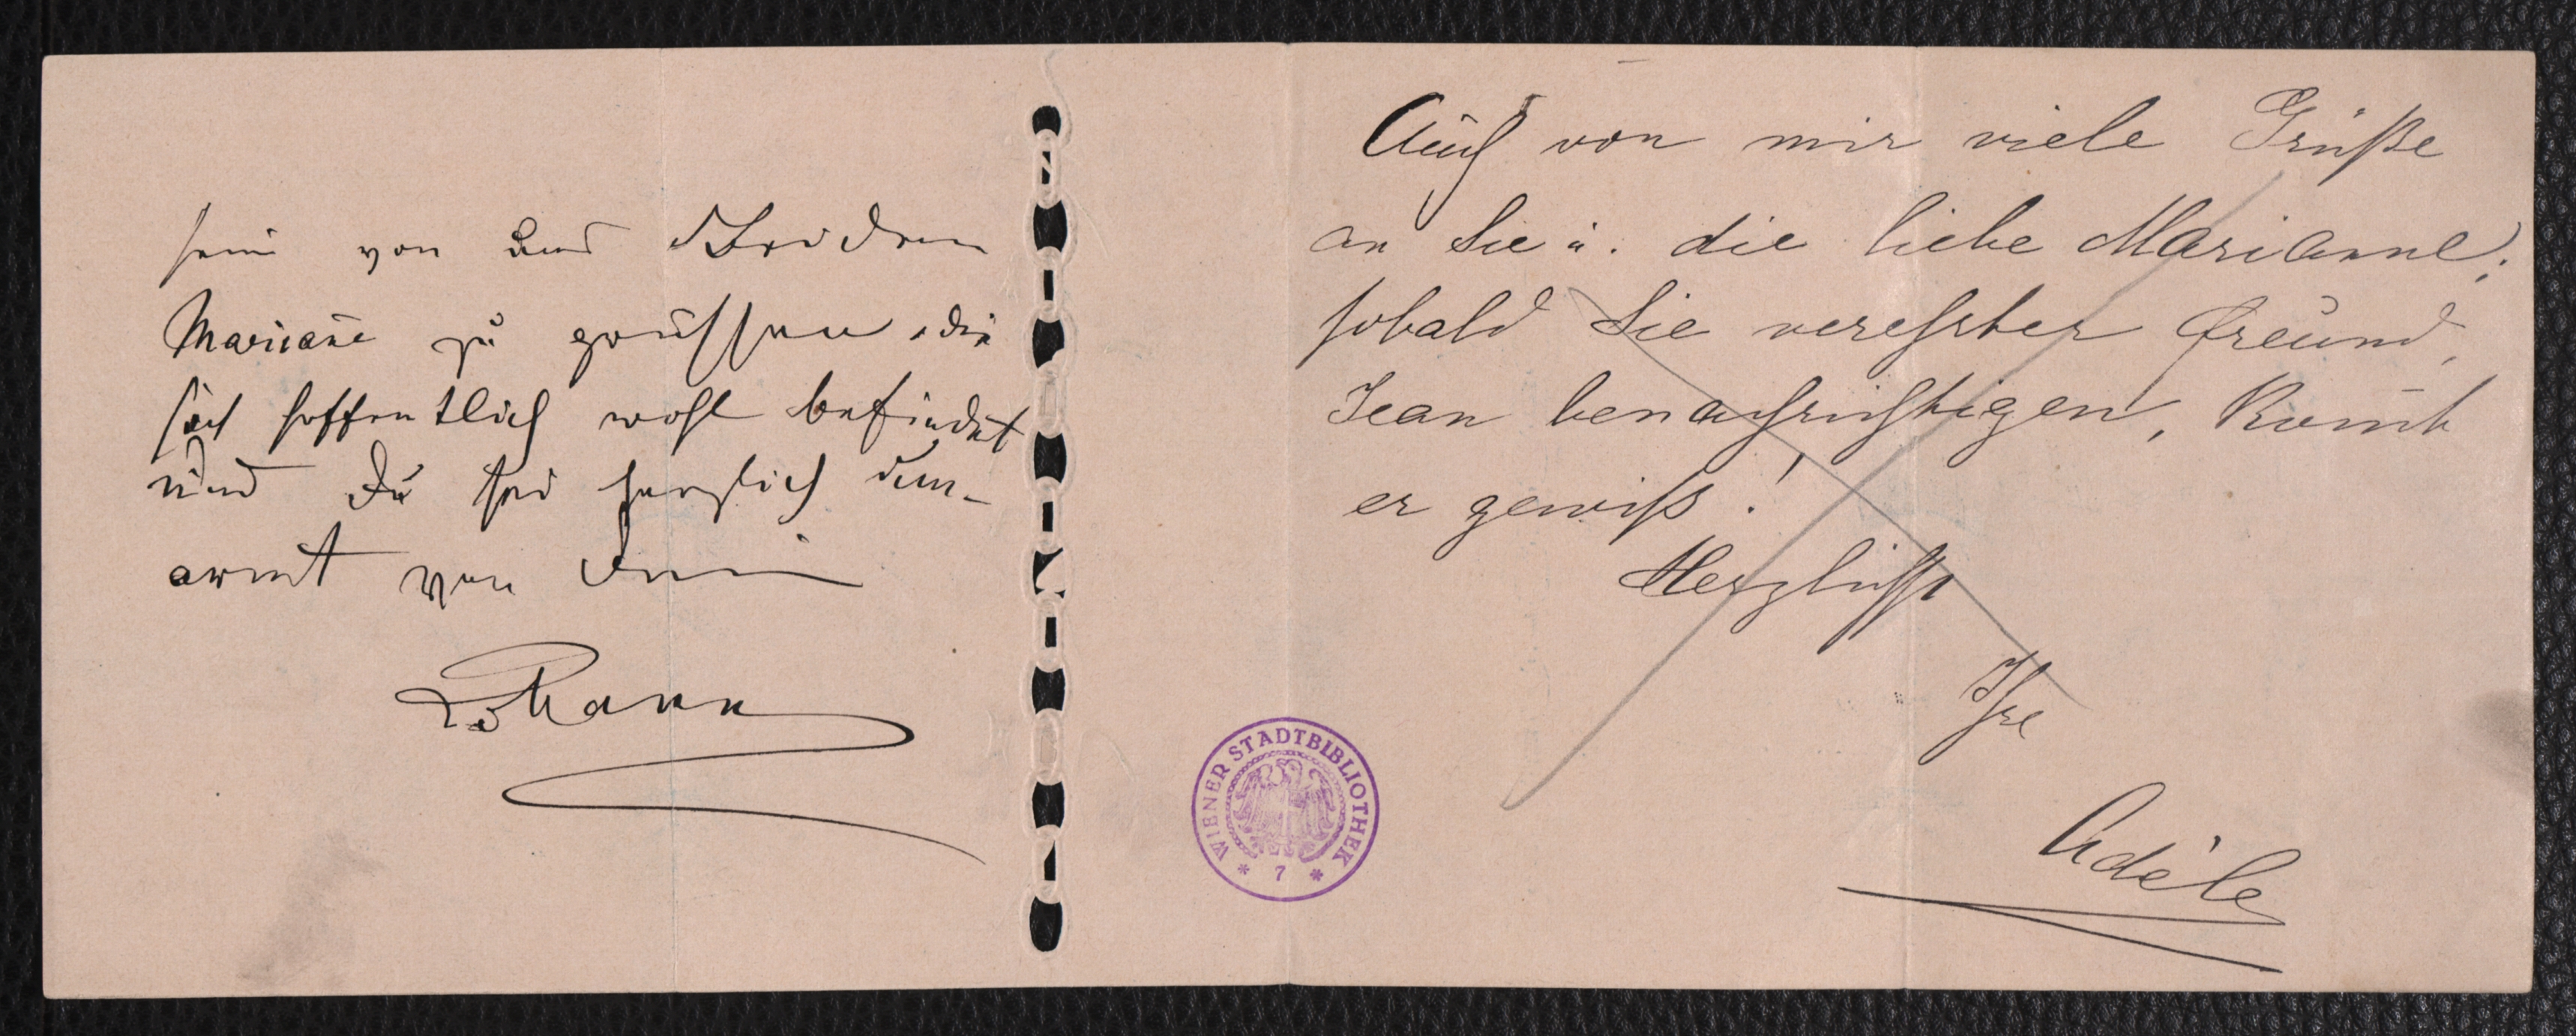 sein von uns Beiden
Mariañe zu grüssen die
sich hoffentlich wohl befindet
und Du sei herzlich um-
armt von Deinem
Johann
Auch von mir viele Grüße
an Sie u. die liebe Marianne;
sobald Sie verehrter Freund,
Jean benachrichtigen, kom̄t
er gewiß!
Herzlichst
Ihre
Adèle
WIENER STADTBIBLIOTHEK
* 7 *